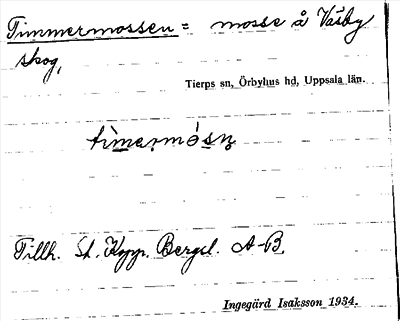 Timmermossen = mosse å Väsby
skog,
Tierps sn, Örbyhus hd, Uppsala län.
tìmermósn̥
Tillh. St. Kyrp. Bergsl. A-B.
Ingegärd Isaksson 1934.